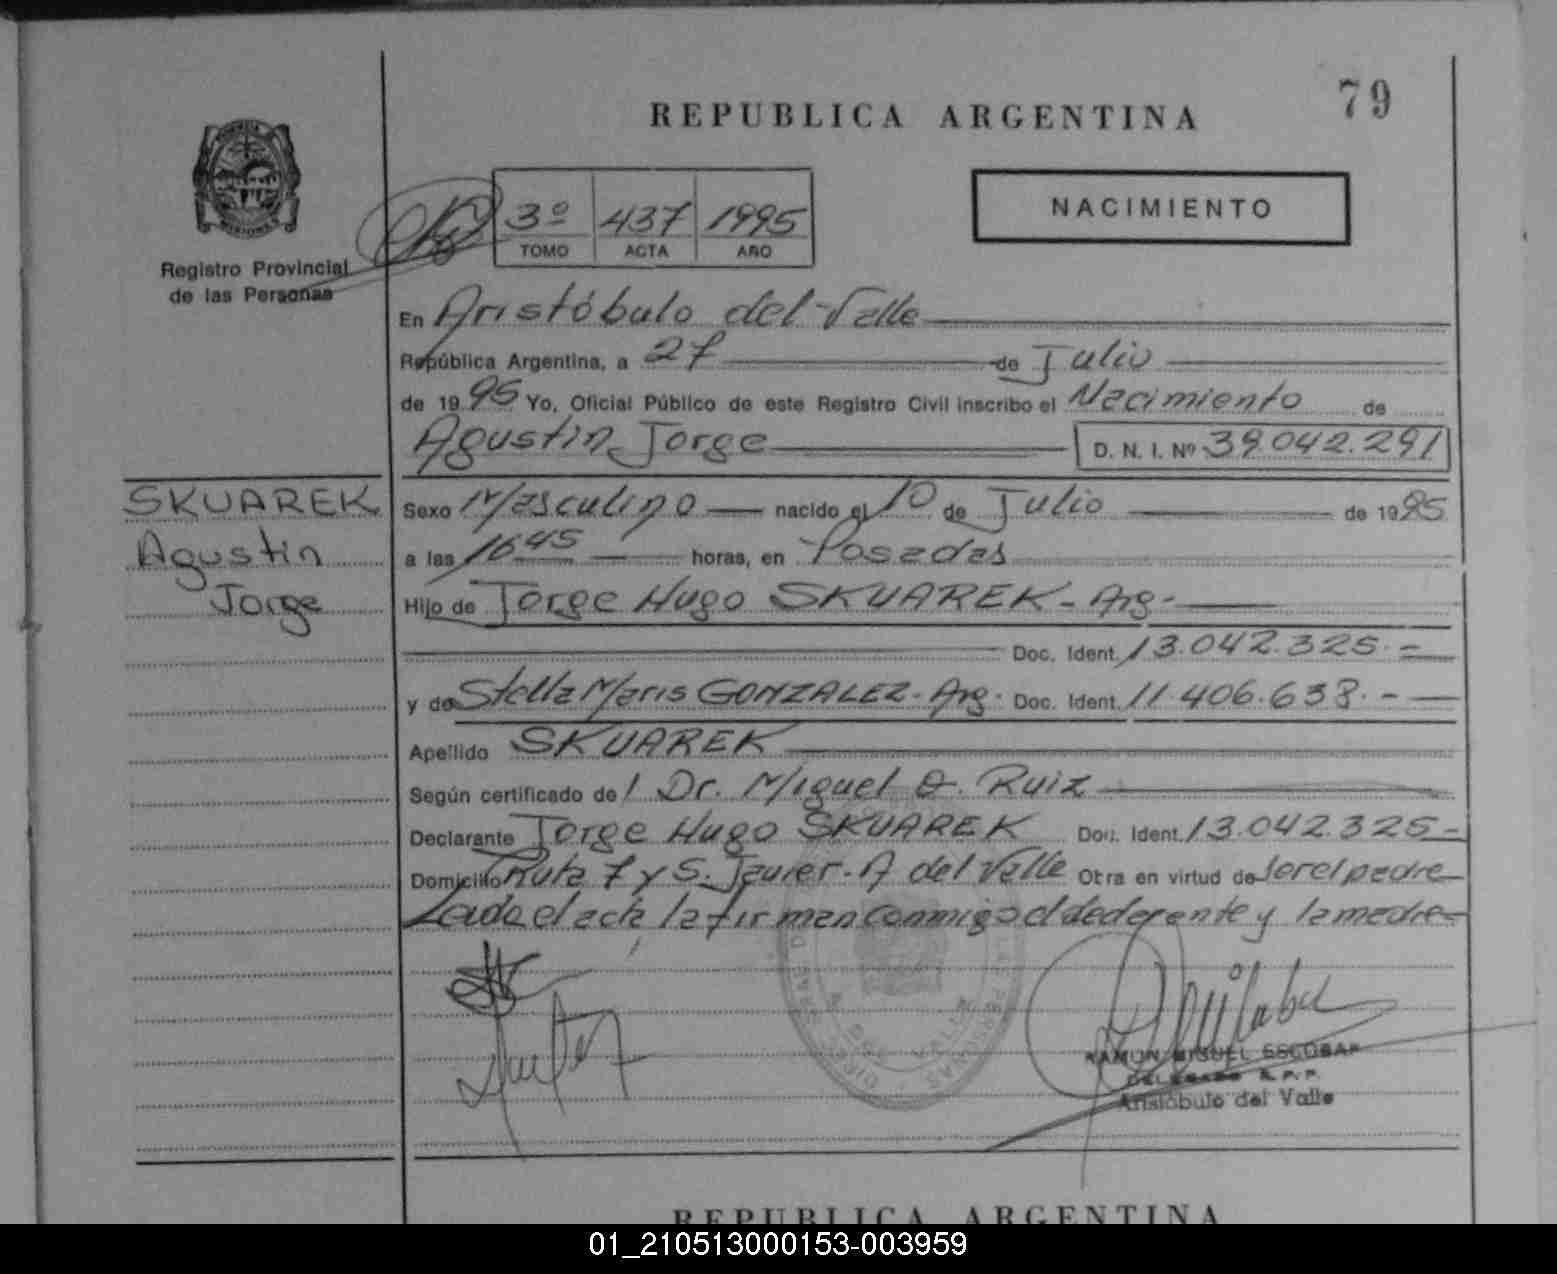 79
REPUBLICA ARGENTINA
NACIMIENTO
3º 437 1995
TOMO ACTA AÑO
Registro Provincial
de las Personas
En Aristóbulo del Valle
República Argentina, a 27 de Julio
de 1995 Yo, Oficial Público de este Registro Civil inscribo el Nacimiento de
Agustin Jorge D. N. I. Nº 39.042.291
SKUAREK
Agustin
Jorge
Sexo Masculino nacido el 10 de Julio de 1995
a las 16 45 horas, en Posadas
Hijo de Jorge Hugo SKUAREK - Arg -
Doc. Ident. 13.042.325.-
y de Stella Maris GONZALEZ - Arg. Doc. Ident. 11.406.638.-
Apellido SKUAREK
Según certificado del Dr. Miguel O. Ruiz
Declarante Jorge Hugo SKUAREK Doc. Ident. 13.042.325-
Domicilio Ruta 7 y S. Javier - A del Valle Otra en virtud de ser el padre
Leida el acta la firman conmigo el declarante y la madre
A. DEL VALLE
RAMON MIGUEL ESCOBAR
DELEGADO R.P.P.
Aristóbulo del Valle
REPUBLICA ARGENTINA
01_210513000153-003959